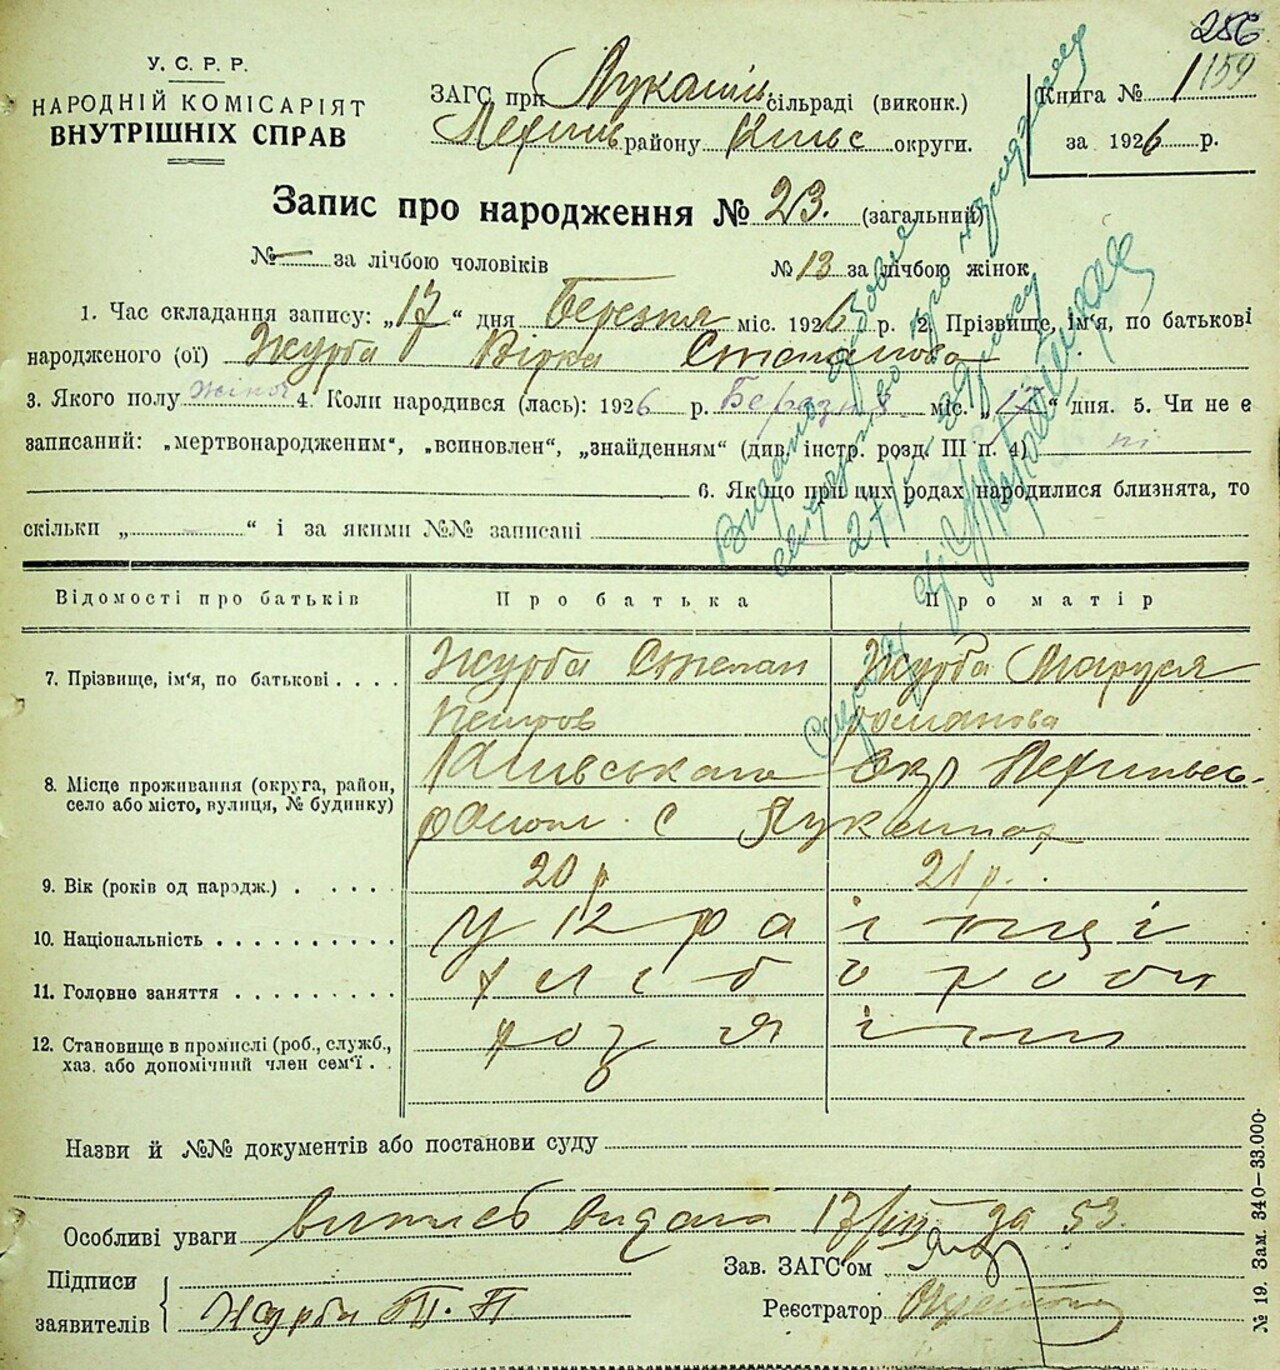 256
159
У. С. Р. Р.
НАРОДНІЙ КОМІСАРІЯТ
ВНУТРІШНІХ СПРАВ
ЗАГС при Лукашів сільраді (виконк.)
району Київс округи.
Книга № 1
за 1926 р.
Запис про народження № 23. (загальний)
№ — за лічбою чоловіків № 13 за лічбою жінок
1. Час складання запису: „17“ дня Березня міс. 1926 р. 2. Прізвище, ім'я, по батькові
народженого (ої) Журба Вірка Степанова
3. Якого полу жіноч 4. Коли народився (лась): 1926 р. Березня міс. „17“ дня. 5. Чи не є
записаний: „мертвонародженим“, „всиновлен“, „знайденням“ (див. інстр. розд. III п. 4) ні
6. Якщо при цих родах народилися близнята, то
скільки „ “ і за якими №№ записані
Відомості про батьків Про батька Про матір
7. Прізвище, ім'я, по батькові Журба Степан Журба Маруся
Петров Романова
8. Місце проживання (округа, район,
село або місто, вулиця, № будинку)
Київськага Окр
район с Лукашах
9. Вік (років од народж.) 20 р 21 р.
10. Національність українці
11. Головне заняття хлібороби
12. Становище в промислі (роб., служб.,
хаз. або допомічний член сем'ї
хозяін
Назви й №№ документів або постанови суду
Особливі уваги витисб видана 17/III за 53.
Підписи
заявителів Журба
Зав. ЗАГС'ом
Реєстратор
№ 19. Зам. 340—33.000.